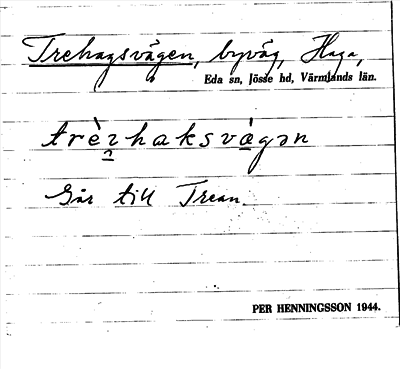 Trehagsvägen, byväg, Haga,
Eda sn, Jösse hd, Värmlands län.
trèzhaksvàgən
Går till Trean
PER HENNINGSSON 1944.